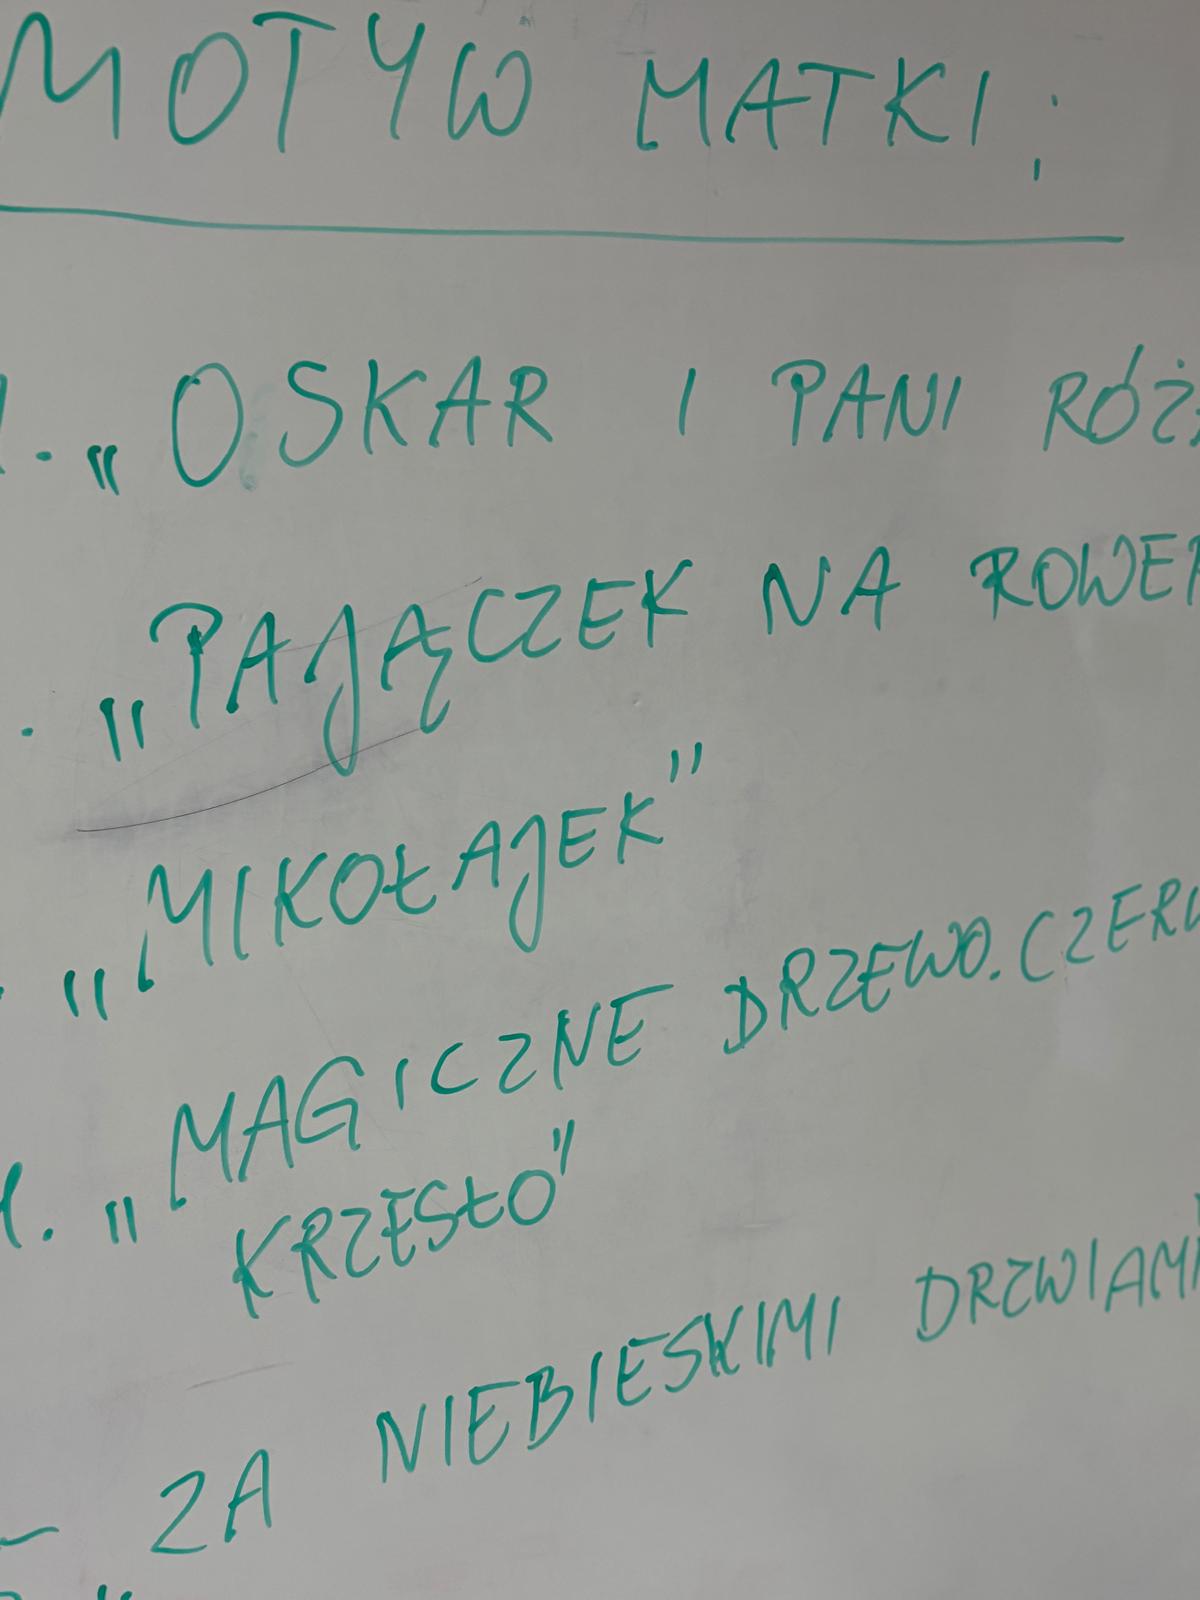 MOTYW MATKI:
1. „OSKAR I PANI RÓŻ
. „PAJĄCZEK NA ROWER
. „MIKOŁAJEK"
4. „MAGICZNE DRZEWO. CZERW
KRZESŁO"
- ZA NIEBIESKIMI DRZWIAMI